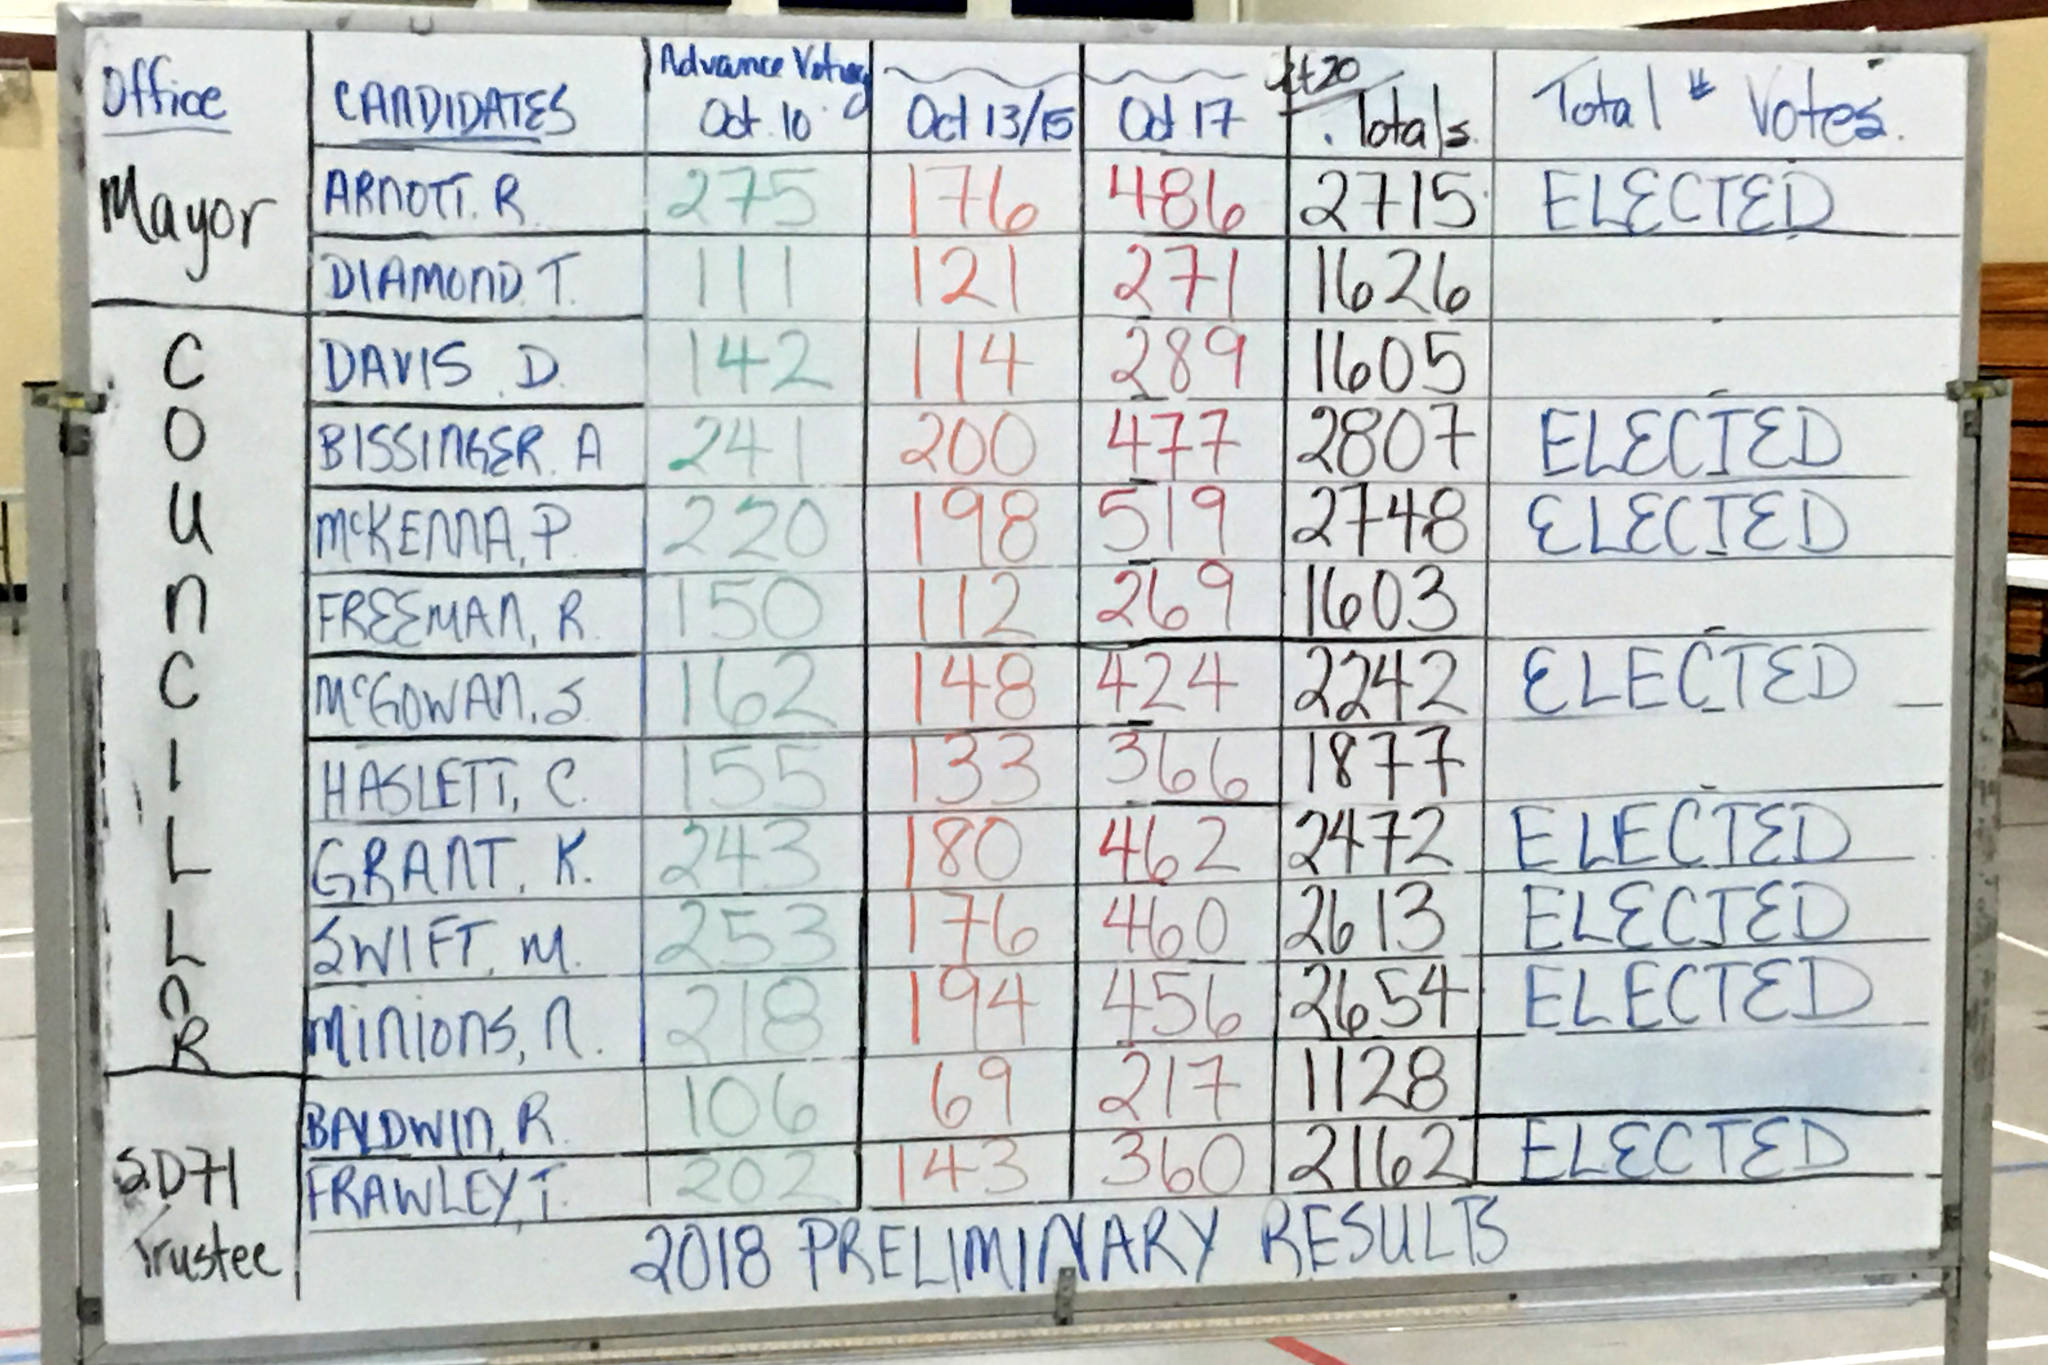 Office CANDIDATES Advance Voting Oct. 10 Oct 13/15 Oct 17 Oct 20 Totals Total # Votes.
Mayor ARNOTT. R. 275 176 486 2715 ELECTED
DIAMOND. T. 111 121 271 1626
COUNCILLOR DAVIS. D. 142 114 289 1605
BISSINGER. A 241 200 477 2807 ELECTED
McKENNA, P. 220 198 519 2748 ELECTED
FREEMAN, R. 150 112 269 1603
McGOWAN, S. 162 148 424 2242 ELECTED
HASLETT, C. 155 133 366 1877
GRANT, K. 243 180 462 2472 ELECTED
SWIFT, M. 253 176 460 2613 ELECTED
MINIONS, N. 218 194 456 2654 ELECTED
SD71 Trustee BALDWIN, R. 106 69 217 1128
FRAWLEY, T. 202 143 360 2162 ELECTED
2018 PRELIMINARY RESULTS